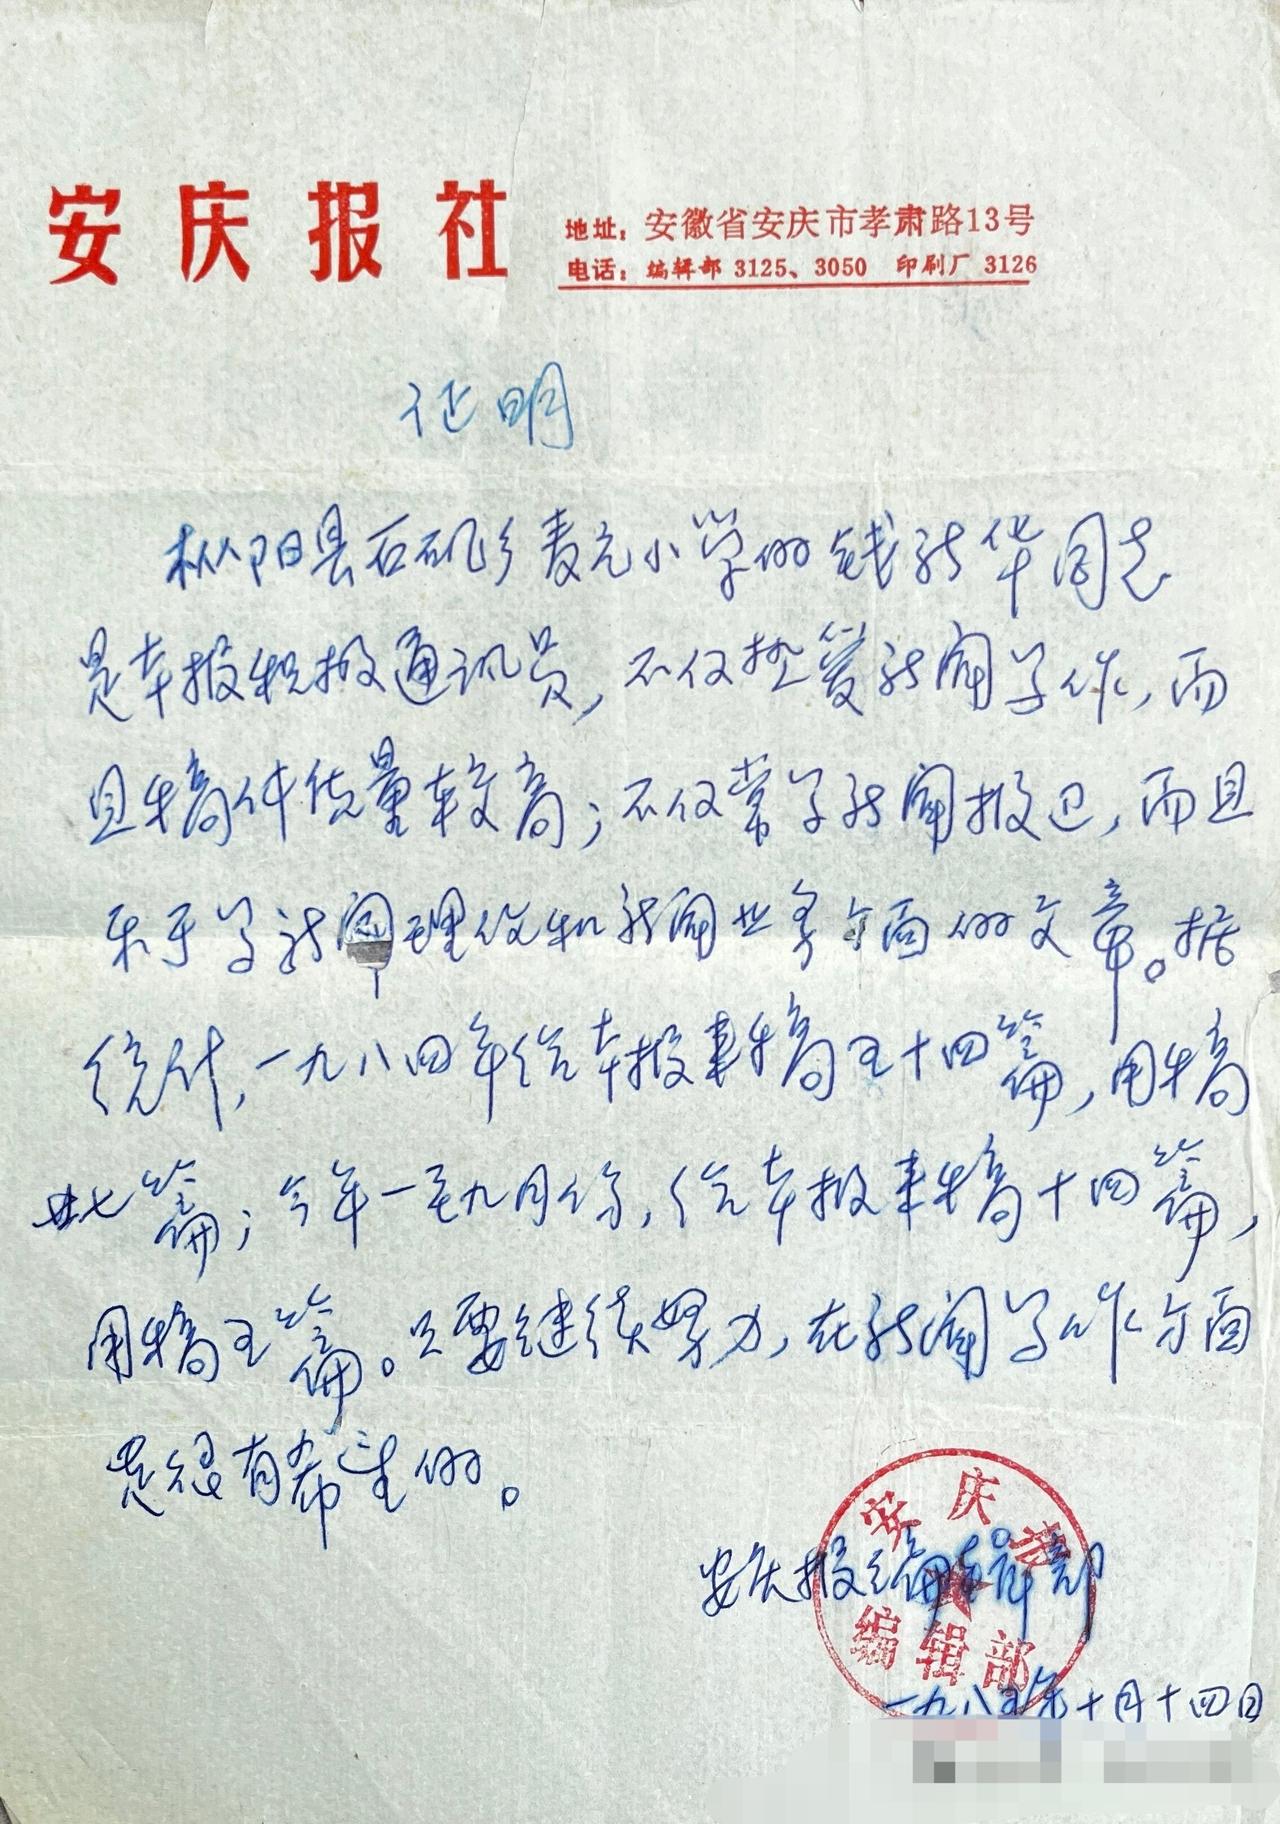 安庆报社
地址：安徽省安庆市孝肃路13号
电话：编辑部 3125、3050 印刷厂 3126
证明
枞阳县石矶乡麦元小学的钱新华同志
是本报积极通讯员，不仅热爱新闻写作，而
且稿件质量较高；不仅常写新闻报道，而且
乐于写新闻理论和新闻业务方面的文章。据
统计，一九八四年给本报来稿五十四篇，用稿
廿七篇；今年一至九月份，给本报来稿十四篇，
用稿五篇。只要继续努力，在新闻写作方面
是很有希望的。
安庆报编辑部
安庆报
编辑部
一九八五年十月十四日